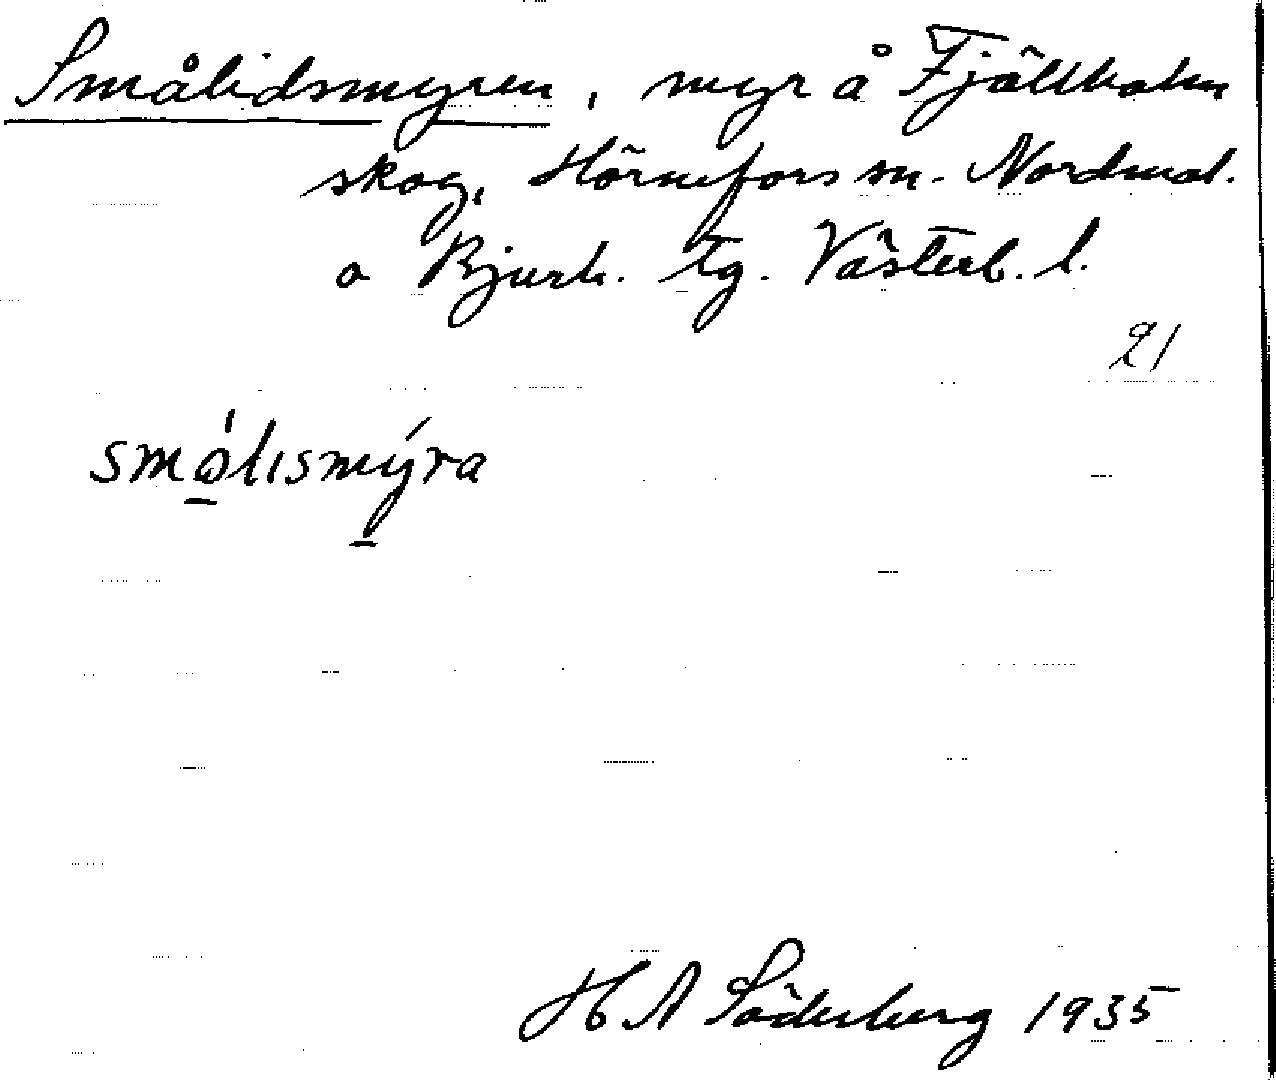 Smålidsmyren, myr å Fjällbohn
skog, Hörnefors sn. Nordmal.
o Bjurh. tg. Västerb. l.
21
smålismýra
H A Söderberg 1935